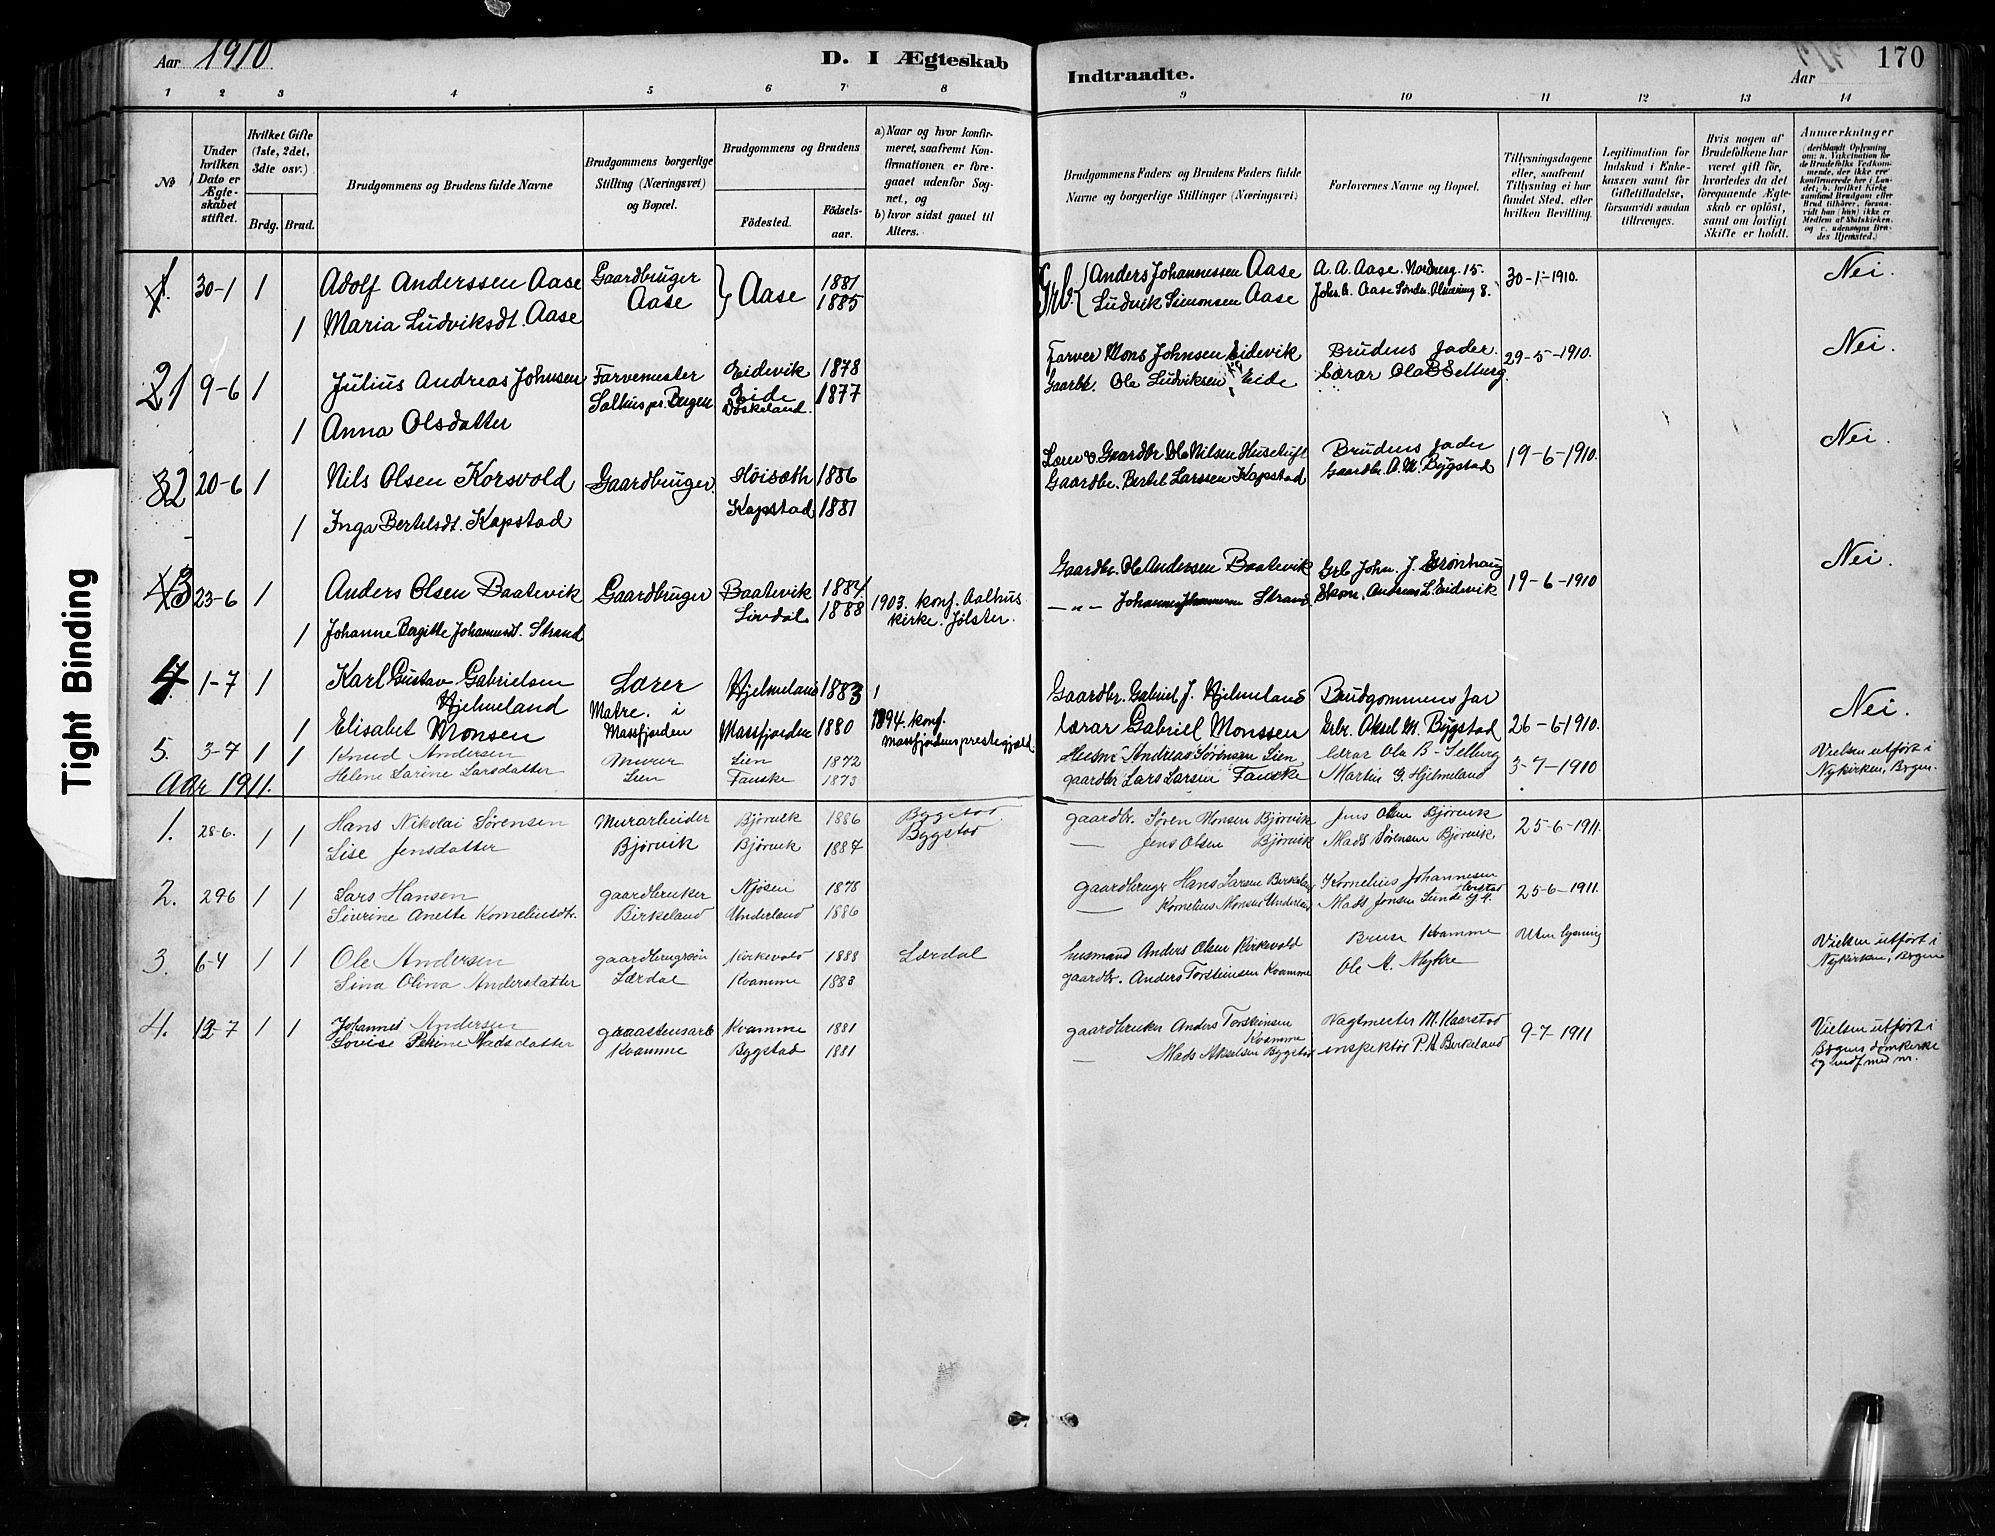 Aar 1910
D. I Ægteskab
Indtraadte.
Aar
170
1 2 3 4 5 6 7 8 9 10 11 12 13 14
No
Under hvilken Dato er Ægteskabet stiftet.
Hvilket Gifte (1ste, 2det, 3die osv.)
Brdg. Brud.
Brudgommens og Brudens fulde Navne
Brudgommens borgerlige Stilling (Næringsvei) og Bopæl.
Brudgommens og Brudens
Födested.
Födselsaar.
a) Naar og hvor konfirmeret, saafremt Konfirmationen er foregaaet udenfor Sognet, og
b) hvor sidst gaaet til Alters.
Brudgommens Faders og Brudens Faders fulde Navne og borgerlige Stillinger (Næringsvei)
Forlovernes Navne og Bopæl.
Tillysningsdagene eller, saafremt Tillysning ei har fundet Sted, efter hvilken Bevilling.
Legitimation for Indskud i Enkekassen samt for Giftetilladelse, forsaavidt saadan tiltrænges.
Hvis nogen af Brudefolkene har været gift för, hvorledes da det foregaaende Ægteskab er oplöst, samt om lovligt Skifte er holdt.
Anmærkninger
1. 30-1 1 Adolf Anderssen Aase Gaardbruger Aase Aase 1881 Anders Johannessen Aase A. A. Aase 30-1-1910. Nei.
1 Maria Ludviksdt. Aase 1885 Grb. Ludvik Simonsen Aase
2 1 9-6 1 Julius Andreas Johnsen Farvemester Eidevik 1878 Farver Mons Johnsen Eidevik Brudens fader. 29-5-1910. Nei.
Salhus pr. Bergen Eide 1877 Gaardb. Ole Ludviksen Eide Lærar Ola B Selburg
1 Anna Olsdatter
3 2 20-6 1 Nils Olsen Korsvold Gaardbruger. Hoisæth 1886 Gaardbr Ole Nilsen Brudens fader 19-6-1910. Nei.
1 Inga Bertelsdt. Kapstad Kapstad 1881 Gaardbr. Bertel Larssen Kapstad Gaardbr. A. M. Bygstad
4 3 23-6 1 Anders Olsen Baatevik Gaardbruger Baatevik 1884 Gaardbr. Ole Andersen Baatevik Grb John. J. Grønhaug 19-6-1910 Nei.
1 Johanne Bergitte Johannesdt. Strand 1888 1903. konf. Aalhus kirke. Jølster. Strand Andreas L. Eidevik
4 1-7 1 Karl Gustav Gabrielsen Hjelmeland Lærer Hjelmeland 1883 Gaardbr. Gabriel J. Hjelmeland Brudgommens far Nei.
1 Elisabet Monsen Matre. i Masfjorden Masfjorden 1880 1894. konf. Masfjordens prestegjeld Lærar Gabriel Monssen Grbr. Aksel M. Bygstad 26-6-1910.
5. 3-7 1 1 Knud Andersen Murer Lien 1872 Andreas Sørensen Lien Lærar Ola B. Selburg Vielsen utført i
Helene Larine Larsdatter Lien Fauske 1873 gaardbr Lars Larsen Fauske Martin G Hjelmeland 3-7-1910 Nykirken, Bergen.
Aar 1911.
1. 28-6. 1 1 Hans Nikolai Sørensen Murarbeider Bjørvik 1886 Bygstad gaardbr. Søren Monsen Bjørvik Jens Olsen Bjørvik 25-6-1911.
Lise Jensdatter Bjørvik Bjørvik 1884 Bygstad — Jens Olsen Bjørvik Mads Sørensen Bjørvik
2. 29 6 1 1 Lars Hansen gaardbruker Njøsen 1878 gaardbruger Hans Larsen Birkeland Kornelius Johannesen 25-6-1911.
Sivrine Anette Korneliusdt. Birkeland Underland 1886 — Kornelius Monsen Underland Mads Jonsen Sunde
3. 6-4 1 1 Ole Andersen gaardbrugssøn Kirkevold 1888 Lærdal husmand Anders Olsen Kirkevold Kvamme Uten lysning Vielsen utført i
Lina Olina Andersdatter Lærdal Kvamme 1883 gaardbr. Anders Torsteinsen Kvamme Ole A. Myhre Nykirken, Bergen
4. 12-7 1 1 Johannes Andersen Kvamme 1881 gaardbruker Anders Torsteinsen Kvamme Vagtmester M. Kaarstad 9-7-1911 Vielsen utført i
Lovise Madsdatter Kvamme Bygstad 1881 — Mads Akselsen Bygstad inspektør P. H. Birkeland Bergens domkirke
Tight Binding